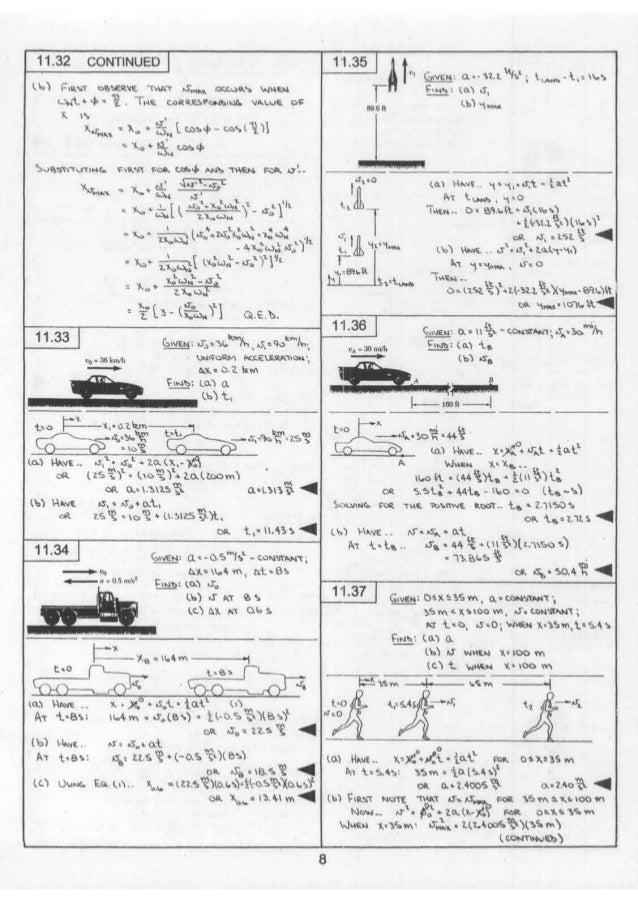 11.32 CONTINUED
(b) FIRST OBSERVE THAT v_MAX OCCURS WHEN
ω_N t + φ = π/2. THE CORRESPONDING VALUE OF
X IS
X_vMAX = X₀ + v'/ω_N [cos φ - cos(π/2)]
= X₀ + v'/ω_N cos φ
SUBSTITUTING FIRST FOR cos φ AND THEN FOR v'..
X_vMAX = X₀ + v'/ω_N √(v'² - v₀²)/v'
= X₀ + 1/ω_N [((v₀² + X₀²ω_N²)/(2X₀ω_N))² - v₀²]^1/2
= X₀ + 1/(2X₀ω_N²) (v₀⁴ + 2v₀²X₀²ω_N² + X₀⁴ω_N⁴
- 4X₀²ω_N²v₀²)^1/2
= X₀ + 1/(2X₀ω_N²) [(X₀²ω_N² - v₀²)²]^1/2
= X₀ + (X₀²ω_N² - v₀²)/(2X₀ω_N²)
= X₀/2 [3 - (v₀/(X₀ω_N))²] Q.E.D.
11.33
GIVEN: v₀=36 km/h, v₁=90 km/h,
UNIFORM ACCELERATION;
ΔX = 0.2 km
FIND: (a) a
(b) t₁
v₀ = 36 km/h
t=0 x X₁=0.2 km t=t₁
v₀=36 km/h v₁=90 km/h = 25 m/s
= 10 m/s
(a) HAVE.. v₁² = v₀² + 2a(X₁ - X₀) 0
OR (25 m/s)² = (10 m/s)² + 2a(200 m)
OR a = 1.3125 m/s² a=1.313 m/s²
(b) HAVE v₁ = v₀ + at₁
OR 25 m/s = 10 m/s + (1.3125 m/s²)t₁
OR t₁ = 11.43 s
11.34
GIVEN: a = -0.5 m/s² - CONSTANT;
ΔX = 164 m, Δt = 8 s
FIND: (a) v₀
(b) v AT 8 s
(c) ΔX AT 0.6 s
v₀
a = 0.5 m/s²
x
X₈ = 164 m
t=0 t=8s
v₀ v₈
(a) HAVE.. X = X₀ 0 + v₀t + ½at² (1)
AT t=8s: 164 m = v₀(8 s) + ½(-0.5 m/s²)(8 s)²
OR v₀ = 22.5 m/s
(b) HAVE.. v = v₀ + at
AT t=8s: v₈ = 22.5 m/s + (-0.5 m/s²)(8 s)
OR v₈ = 18.5 m/s
(c) USING EQ. (1).. X₀.₆ = (22.5 m/s)(0.6 s) + ½(-0.5 m/s²)(0.6 s)²
OR X₀.₆ = 13.41 m
11.35
v₁
GIVEN: a = -32.2 ft/s²; t_LAND - t₁ = 16 s
FIND: (a) v₁
(b) y_MAX
89.6 ft
v₂=0
t₂
v₁
t₁
y₂=y_MAX
y₁=89.6 ft
t₃=t_LAND
(a) HAVE.. y = y₁ + v₁t + ½at²
AT t_LAND, y=0
THEN.. 0 = 89.6 ft + v₁(16 s)
+ ½(-32.2 ft/s²)(16 s)²
OR v₁ = 252 ft/s
(b) HAVE.. v² = v₁² + 2a(y-y₁)
AT y = y_MAX, v=0
THEN..
0 = (252 ft/s)² + 2(-32.2 ft/s²)(y_MAX - 89.6) ft
OR y_MAX = 1076 ft
11.36
GIVEN: a = 11 ft/s² - CONSTANT; v_A = 30 mi/h
FIND: (a) t_B
(b) v_B
v_A = 30 mi/h
A B
160 ft
t=0 x
v_A = 30 mi/h = 44 ft/s
A
(a) HAVE.. X = X_A 0 + v_A t + ½at²
WHEN X = X_B ..
160 ft = (44 ft/s)t_B + ½(11 ft/s²)t_B²
OR 5.5t_B² + 44t_B - 160 = 0 (t_B ~ s)
SOLVING FOR THE POSITIVE ROOT.. t_B = 2.7150 s
OR t_B = 2.72 s
(b) HAVE.. v = v_A + at
AT t=t_B .. v_B = 44 ft/s + (11 ft/s²)(2.7150 s)
= 73.865 ft/s
OR v_B = 50.4 mi/h
11.37
GIVEN: 0≤X≤35 m, a = CONSTANT;
35 m < X ≤ 100 m, v = CONSTANT;
AT t=0, v=0; WHEN X=35 m, t=5.4 s
FIND: (a) a
(b) v WHEN X=100 m
(c) t WHEN X=100 m
x
35 m 65 m
t=0 t₁=5.4s v₁ t₂ v₂
v=0
(a) HAVE.. X = X₀ 0 + v₀t 0 + ½at² FOR 0≤X≤35 m
AT t=5.4s: 35 m = ½a(5.4 s)²
OR a = 2.4005 m/s² a=2.40 m/s²
(b) FIRST NOTE THAT v = v_MAX FOR 35 m ≤ X ≤ 100 m
NOW.. v² = v₀² 0 + 2a(X-X₀ 0) FOR 0≤X≤35 m
WHEN X=35 m: v²_MAX = 2(2.4005 m/s²)(35 m)
(CONTINUED)
8